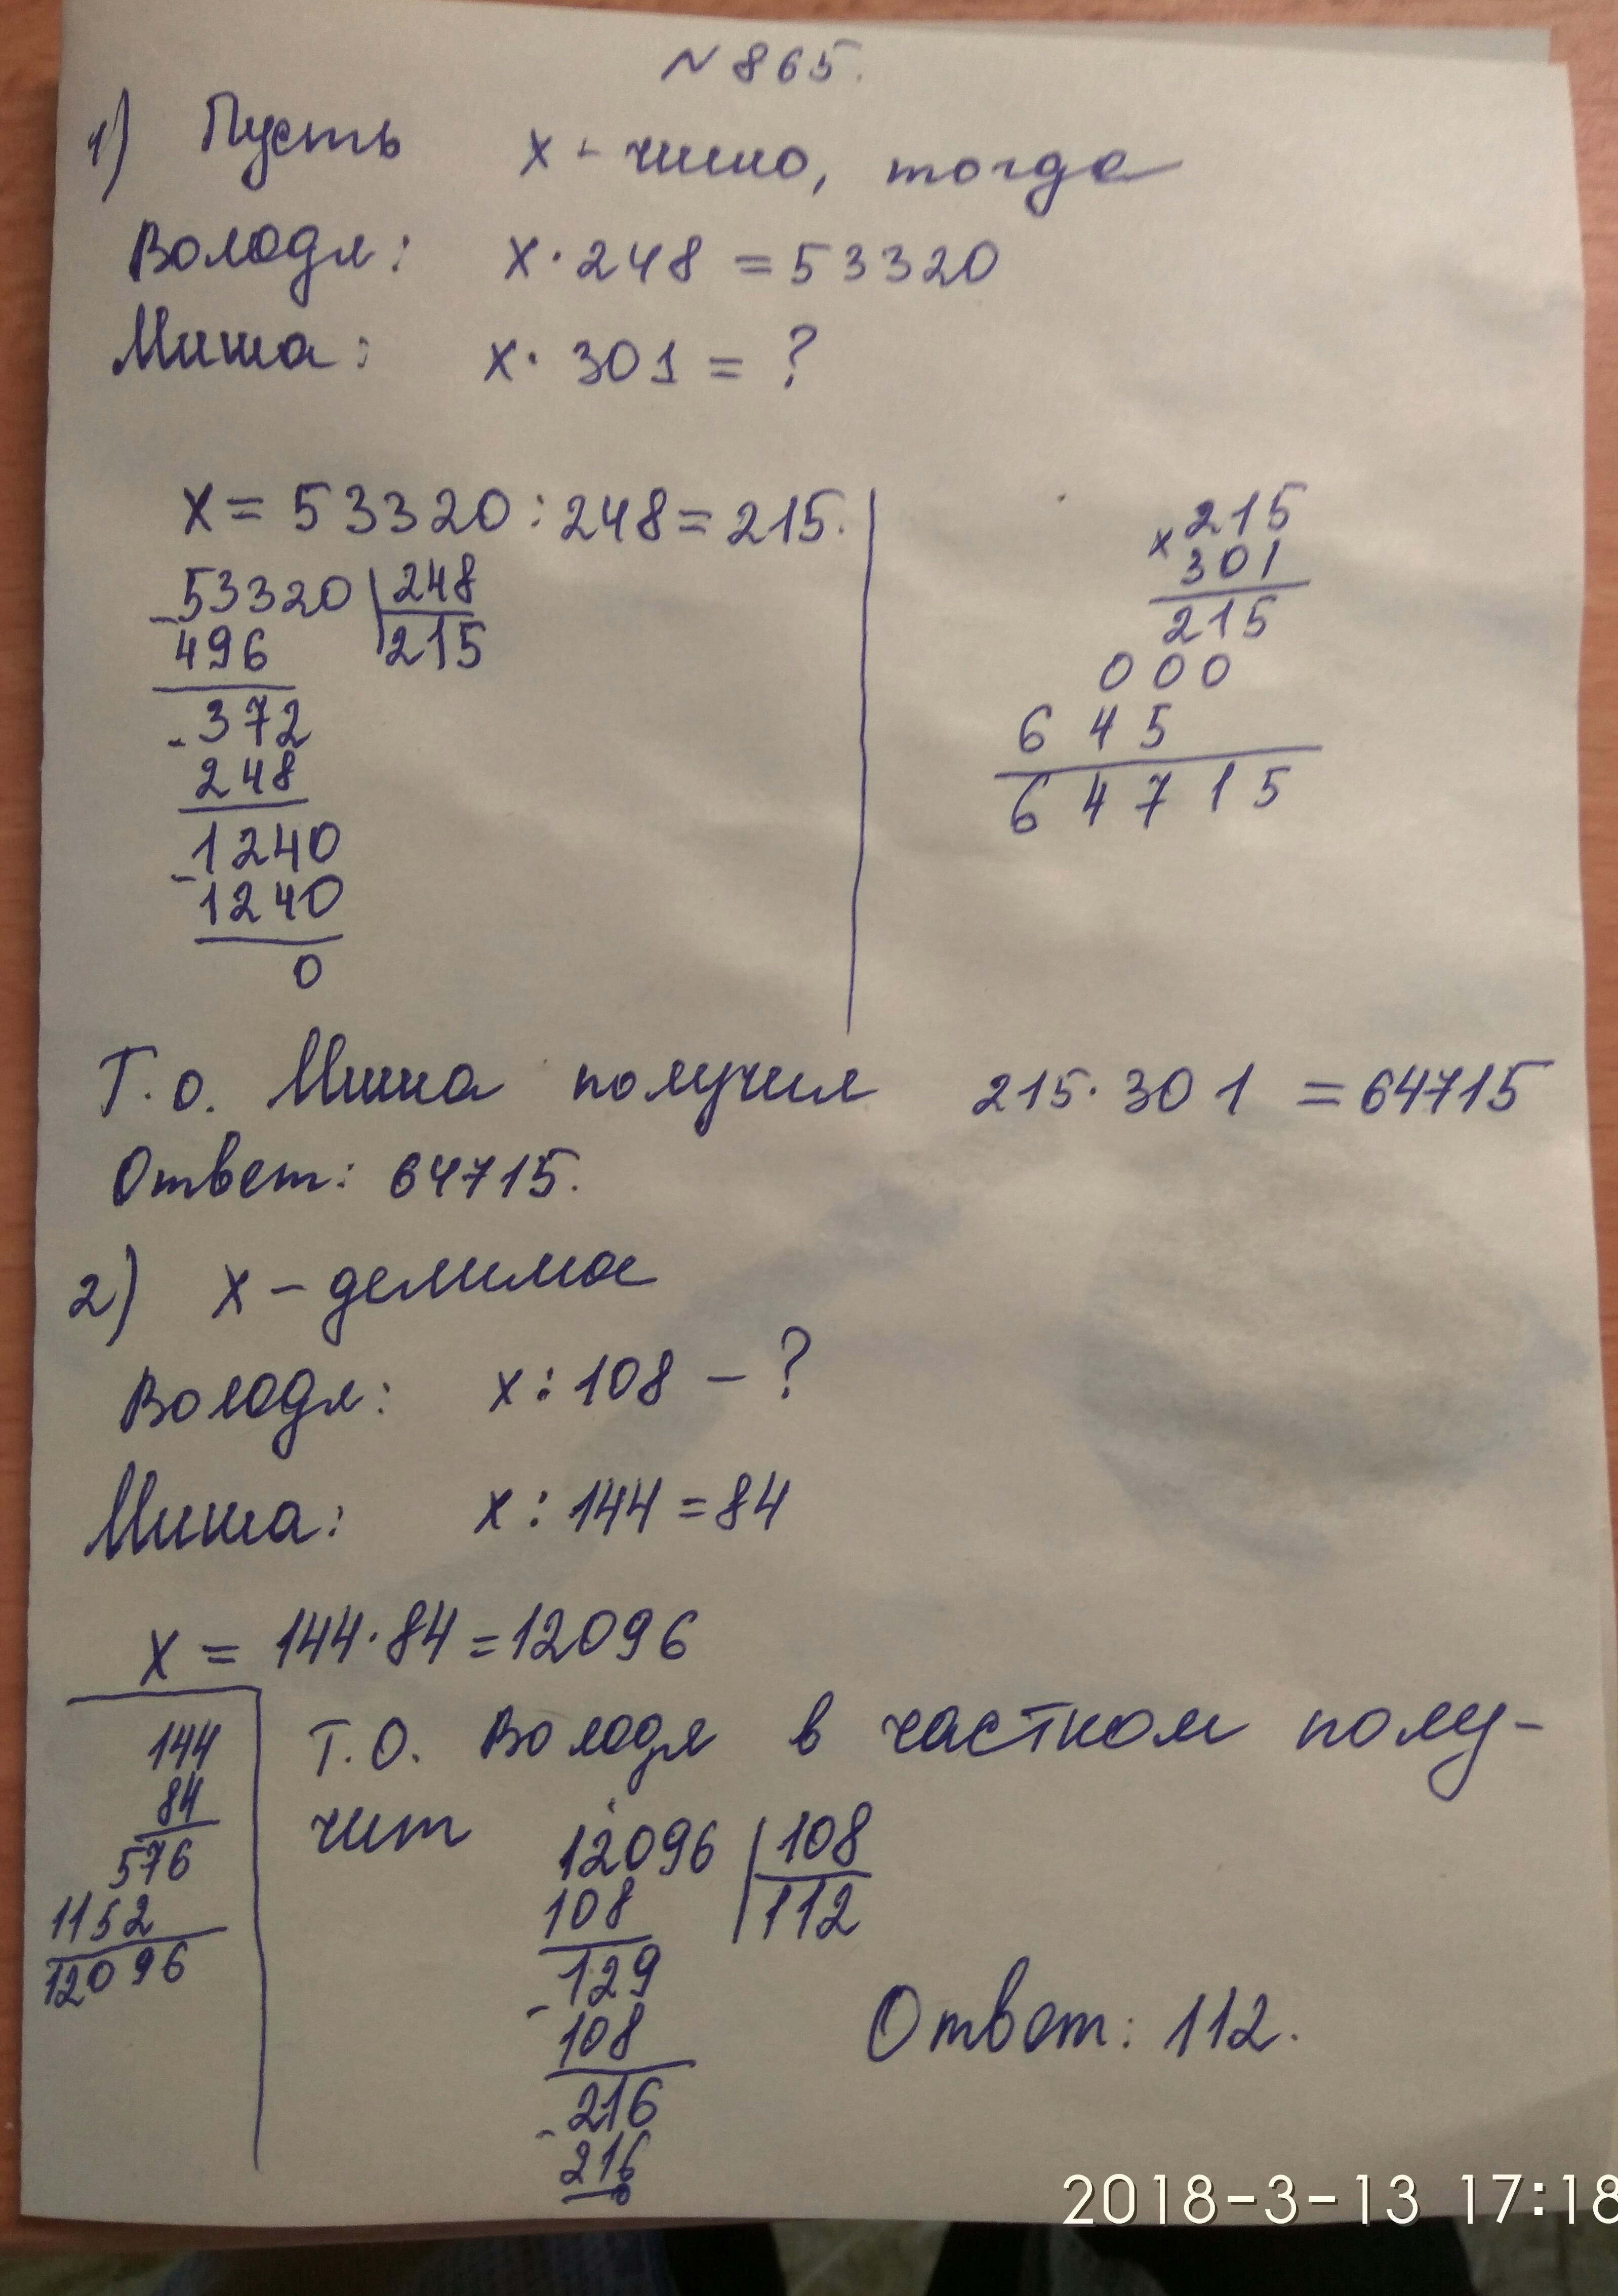 N 865.
1) Пусть x - число, тогда
Володя: x · 248 = 53320
Миша: x · 301 = ?
x = 53320 : 248 = 215.
-53320 248
496 215
-372
248
-1240
1240
0
x 215
301
215
000
645
64715
Т.о. Миша получил 215 · 301 = 64715
Ответ: 64715.
2) x - делимое
Володя: x : 108 - ?
Миша: x : 144 = 84
x = 144 · 84 = 12096
144
84
576
1152
12096
Т.О. Володя в частном полу-
чит 12096 108
108 112
-129
108
-216
216
0
Ответ: 112.
2018-3-13 17:18